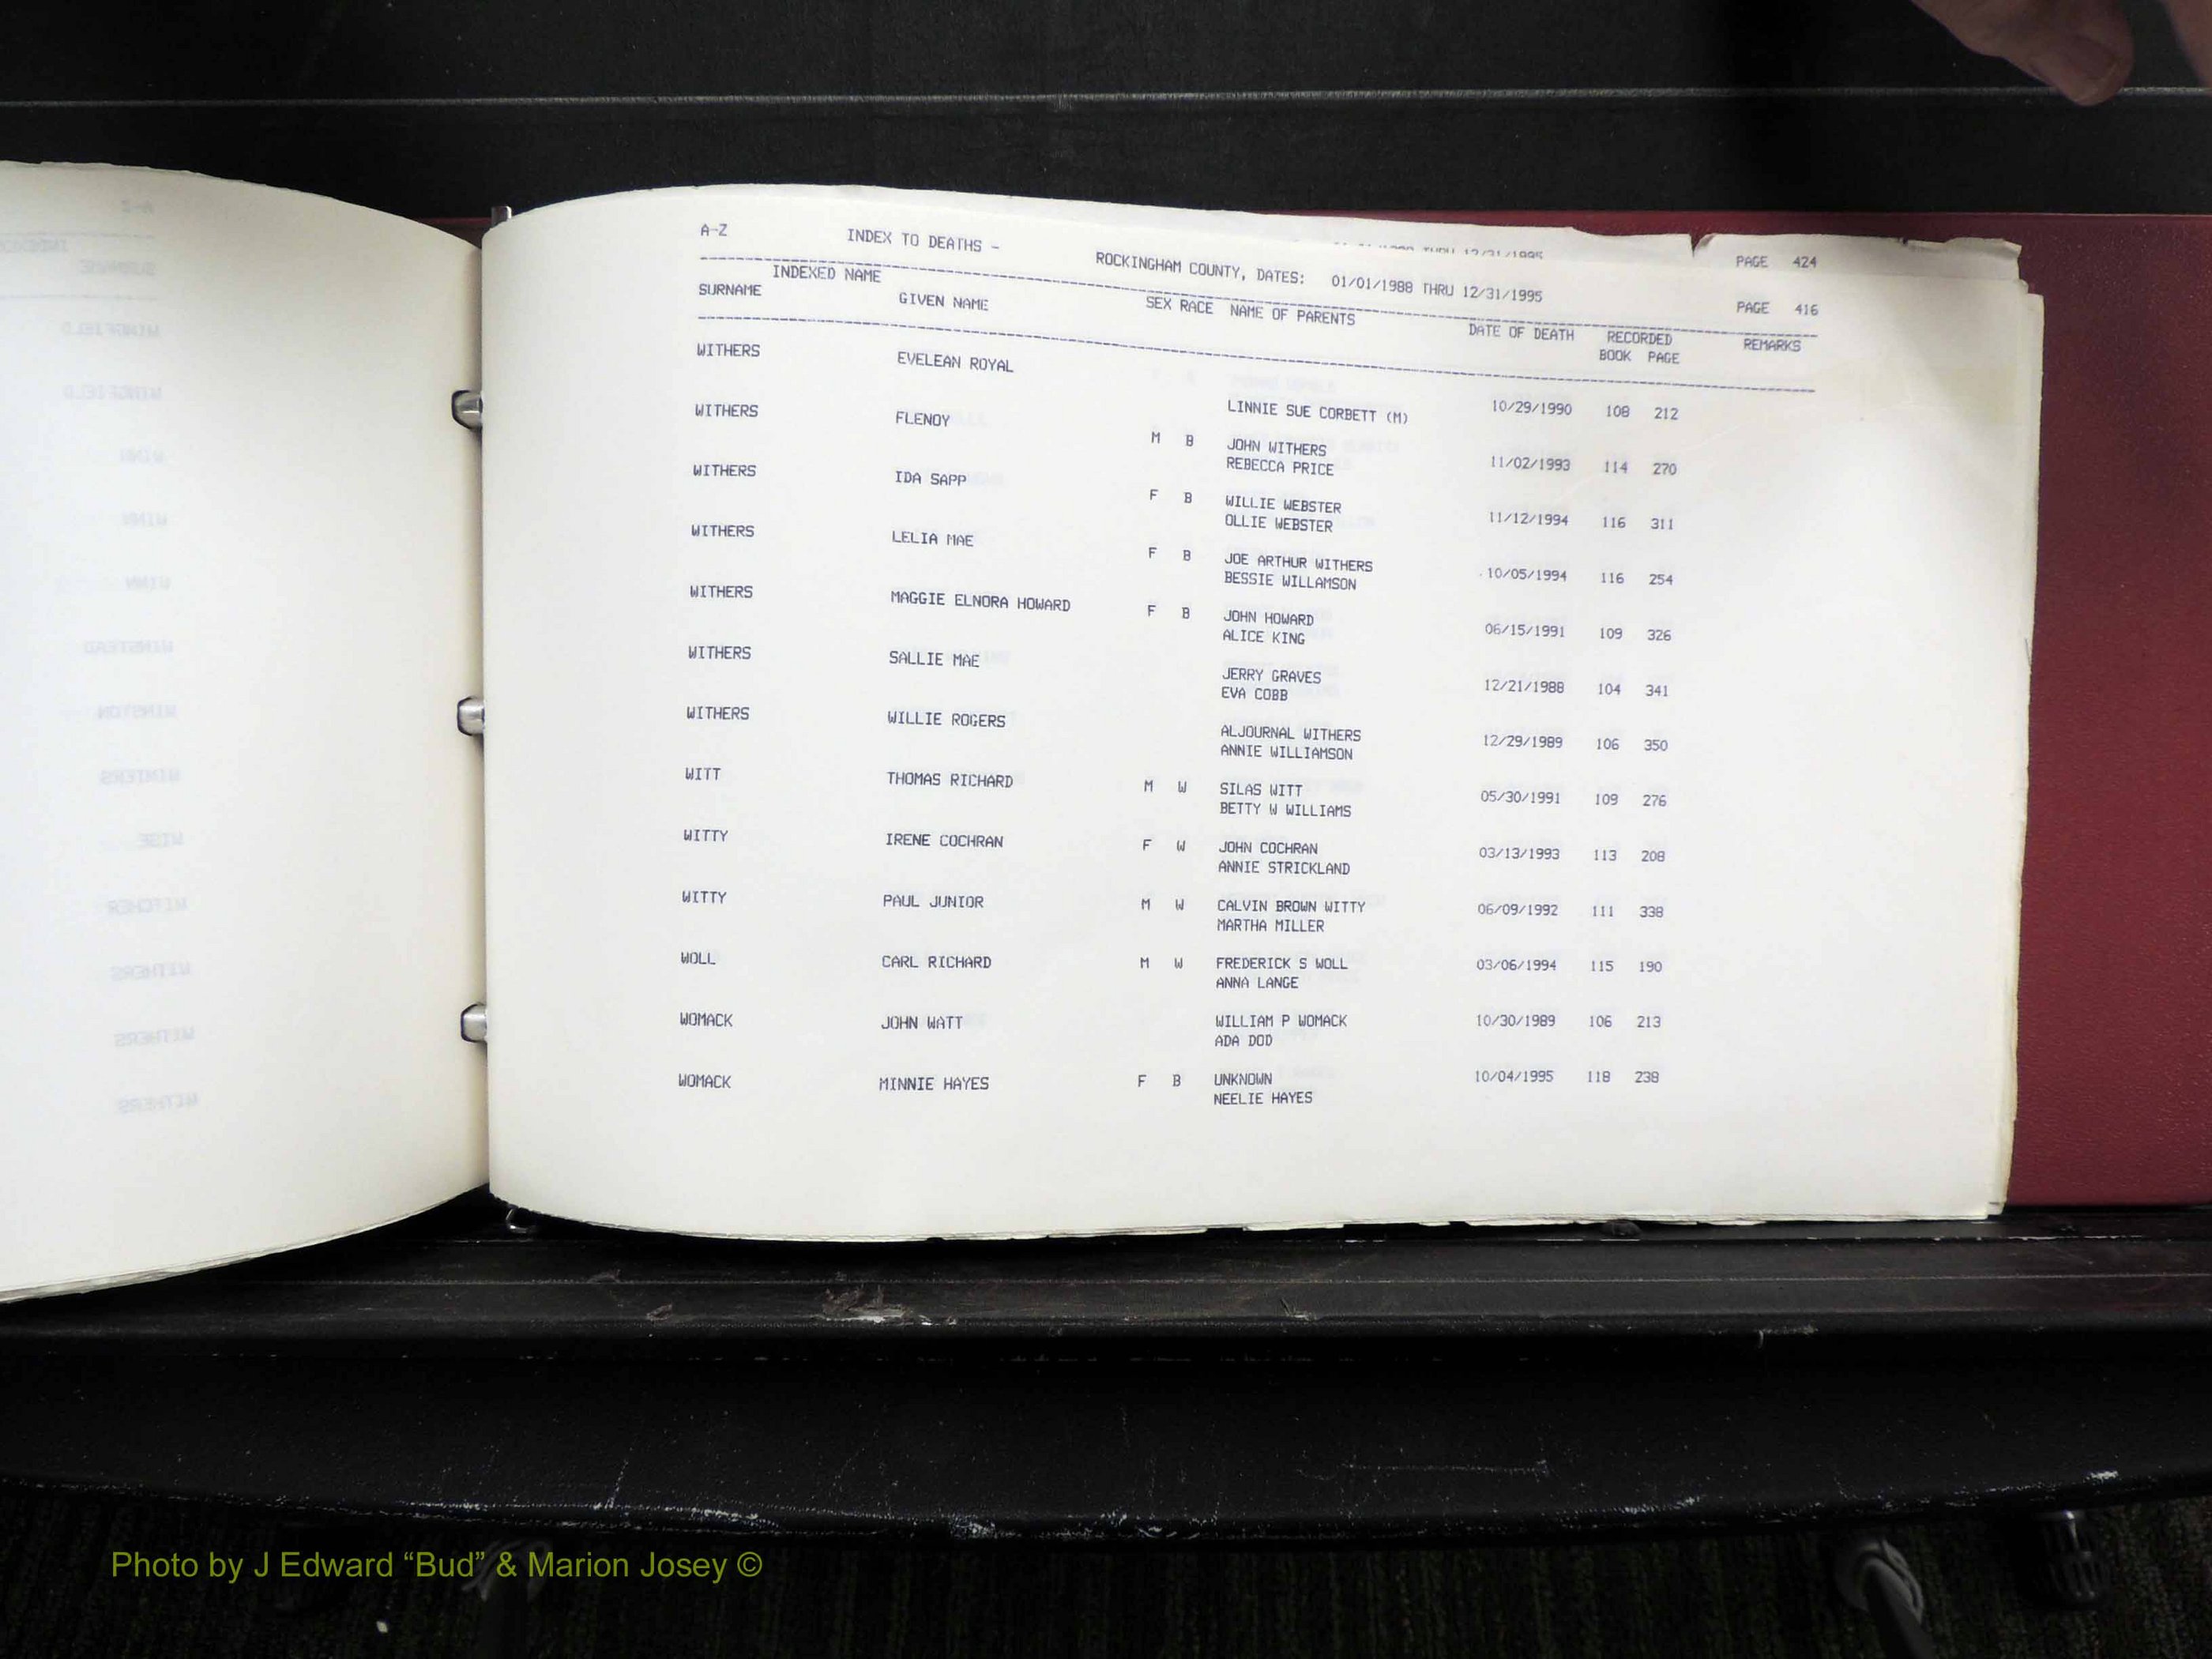 01/01/1988 THRU 12/31/1995 PAGE 424
A-Z INDEX TO DEATHS - ROCKINGHAM COUNTY, DATES: 01/01/1988 THRU 12/31/1995 PAGE 416
INDEXED NAME
SURNAME GIVEN NAME SEX RACE NAME OF PARENTS DATE OF DEATH RECORDED REMARKS
BOOK PAGE
WITHERS EVELEAN ROYAL
LINNIE SUE CORBETT (M) 10/29/1990 108 212
WITHERS FLENOY M B JOHN WITHERS 11/02/1993 114 270
REBECCA PRICE
WITHERS IDA SAPP F B WILLIE WEBSTER 11/12/1994 116 311
OLLIE WEBSTER
WITHERS LELIA MAE F B JOE ARTHUR WITHERS 10/05/1994 116 254
BESSIE WILLAMSON
WITHERS MAGGIE ELNORA HOWARD F B JOHN HOWARD 06/15/1991 109 326
ALICE KING
WITHERS SALLIE MAE JERRY GRAVES 12/21/1988 104 341
EVA COBB
WITHERS WILLIE ROGERS ALJOURNAL WITHERS 12/29/1989 106 350
ANNIE WILLIAMSON
WITT THOMAS RICHARD M W SILAS WITT 05/30/1991 109 276
BETTY W WILLIAMS
WITTY IRENE COCHRAN F W JOHN COCHRAN 03/13/1993 113 208
ANNIE STRICKLAND
WITTY PAUL JUNIOR M W CALVIN BROWN WITTY 06/09/1992 111 338
MARTHA MILLER
WOLL CARL RICHARD M W FREDERICK S WOLL 03/06/1994 115 190
ANNA LANGE
WOMACK JOHN WATT WILLIAM P WOMACK 10/30/1989 106 213
ADA DOD
WOMACK MINNIE HAYES F B UNKNOWN 10/04/1995 118 238
NEELIE HAYES
Photo by J Edward “Bud” & Marion Josey ©